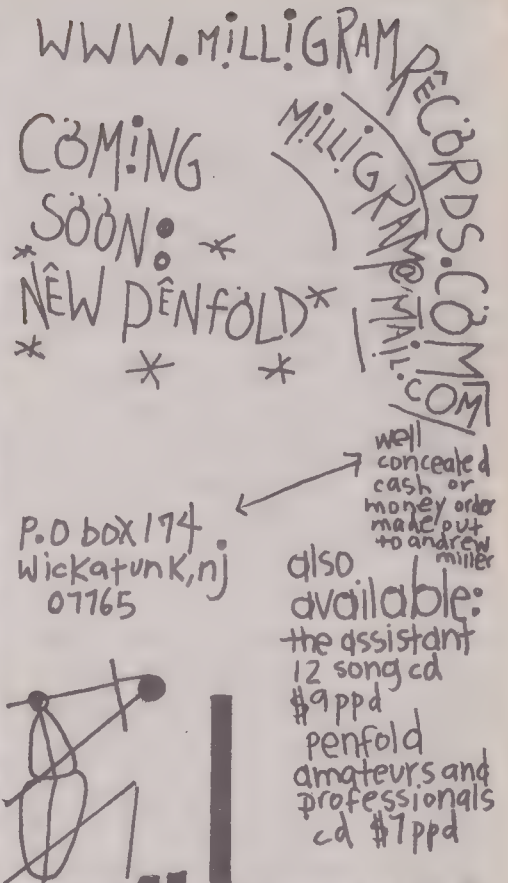 WWW.MiLLiGRAMRÊCÖRDS.CÖM
MiLLiGRAM@MAiL.COM
CÖMiNG
SÖÖN:
NÊW PÊNfÖLD
well
concealed
cash or
money order
made out
to andrew
miller
P.O box 174
Wickatunk, nj
07765
also
available:
the assistant
12 song cd
$9 ppd
penfold
amateurs and
professionals
cd $7 ppd